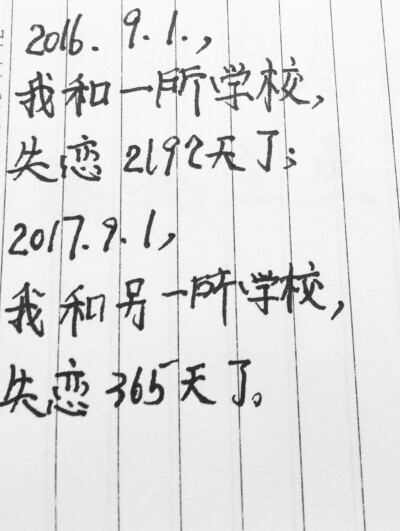 2016.9.1.,
我和一所学校,
失恋2192天了;
2017.9.1,
我和另一所学校,
失恋365天了。